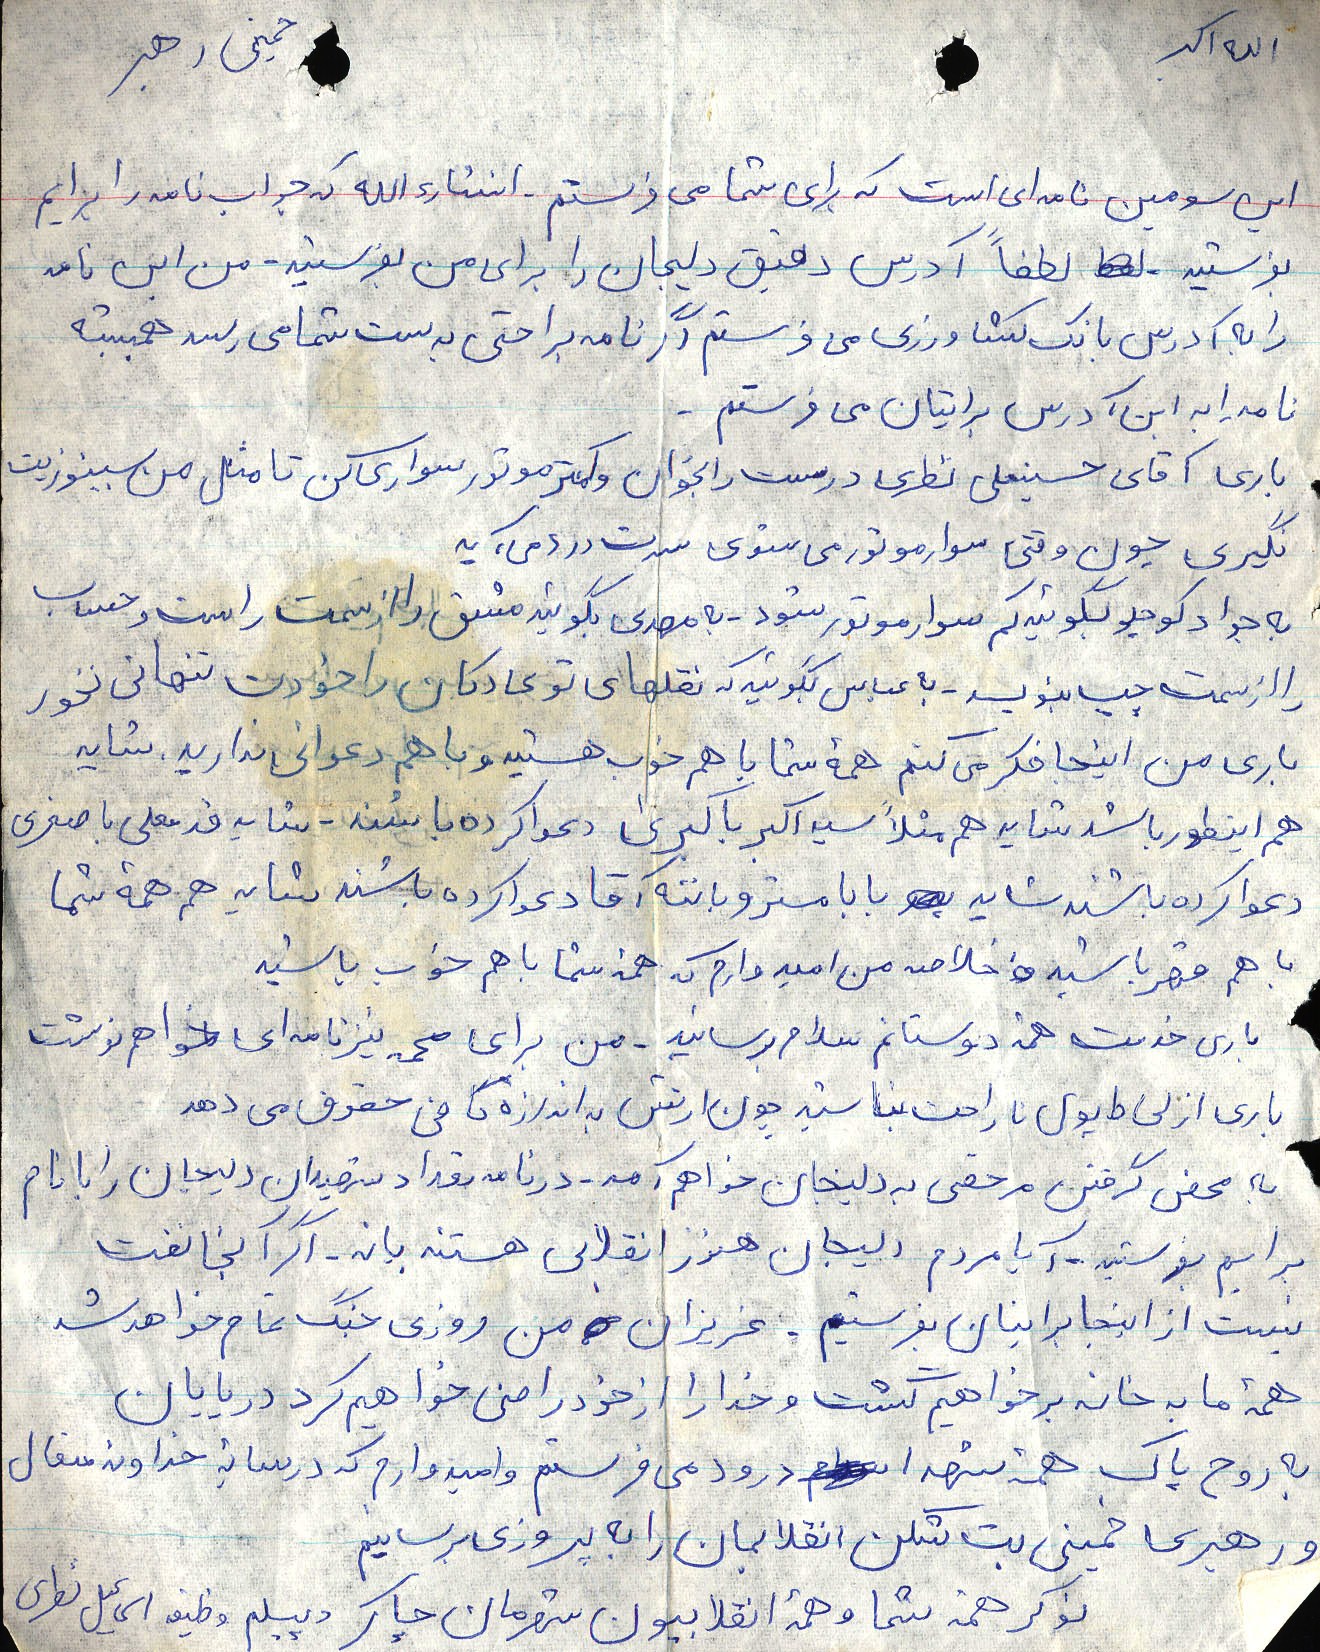 الله اکبر
خمینی رهبر
این سومین نامه ای است که برای شما می فرستم - انشاء الله که جواب نامه را برایم
بفرستید - لطفاً آدرس دقیق دلیجان را برای من بفرستید - من این نامه
را به آدرس بانک کشاورزی می فرستم اگر نامه براحتی بدست شما می رسد همیشه
نامه را به این آدرس برایتان می فرستم -
باری آقای حسینعلی نظری درست را بخوان و کمتر موتور سواری کن تا مثل من سینوزیت
نگیری چون وقتی سوار موتور می شوی سرت درد می آید
به جواد کوچلو بگوئید کم سوار موتور شود - به مهدی بگوئید مشق را از سمت راست و حساب
را از سمت چپ بنویسد - به عباس بگوئید که نقلهای توی دکان را خودت تنهائی نخور
باری من اینجا فکر می کنم همهٔ شما با هم خوب هستید و با هم دعوائی ندارید. شاید
هم اینطور باشد شاید هم مثلاً سید اکبر با کبری دعوا کرده باشند - شاید قدمعلی با صغری
دعوا کرده باشند شاید بابا مستر و با ننه آقا دعوا کرده باشند شاید هم همهٔ شما
با هم قهر باشید خلاصه من امیدوارم که همهٔ شما با هم خوب باشید
باری خدمت همهٔ دوستانم سلام برسانید - من برای محمد نیز نامه ای خواهم نوشت
باری از لحاظ پول ناراحت نباشید چون ارتش به اندازهٔ کافی حقوق می دهد
به محض گرفتن مرخصی به دلیجان خواهم آمد - در نامه تعداد شهیدان دلیجان را با نام
برایم بفرستید - آیا مردم دلیجان هنوز انقلابی هستند یا نه - اگر آنجا نفت
نیست از اینجا برایتان بفرستیم - عزیزان من روزی جنگ تمام خواهد شد
همهٔ ما به خانه بر خواهیم گشت و خدا را از خود راضی خواهیم کرد در پایان
به روح پاک همهٔ شهدا درود می فرستم و امیدوارم که در سایهٔ خداوند متعال
و رهبری خمینی بت شکن انقلابمان را به پیروزی برسانیم
نوکر همهٔ شما و همهٔ انقلابیون شهرمان چاکر دیپلم وظیفه اسماعیل نظری